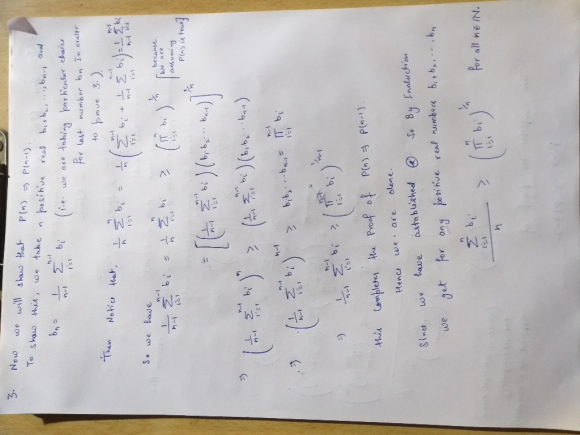 3. Now we will show that P(n) ⇒ P(n-1).
To show this, we take n positive real b₁, b₂, ..., bₙ₋₁ and
bₙ = 1/(n-1) ∑_{i=1}^{n-1} bᵢ (i.e. we are taking particular choice
for last number bₙ in order
to prove 3.)
Then Notice that, 1/n ∑_{i=1}^{n} bᵢ = 1/n ( ∑_{i=1}^{n-1} bᵢ + 1/(n-1) ∑_{i=1}^{n-1} bᵢ ) = 1/(n-1) ∑_{i=1}^{n-1} bᵢ
So we have
1/(n-1) ∑_{i=1}^{n-1} bᵢ = 1/n ∑_{i=1}^{n} bᵢ ≥ ( ∏_{i=1}^{n} bᵢ )^{1/n} | because we are assuming P(n) is true
= [ ( 1/(n-1) ∑_{i=1}^{n-1} bᵢ ) ( b₁ b₂ ... bₙ₋₁ ) ]^{1/n}
⇒ ( 1/(n-1) ∑_{i=1}^{n-1} bᵢ )^n ≥ ( 1/(n-1) ∑_{i=1}^{n-1} bᵢ ) ( b₁ b₂ ... bₙ₋₁ )
⇒ ( 1/(n-1) ∑_{i=1}^{n-1} bᵢ )^{n-1} ≥ b₁ b₂ ... bₙ₋₁ = ∏_{i=1}^{n-1} bᵢ
⇒ 1/(n-1) ∑_{i=1}^{n-1} bᵢ ≥ ( ∏_{i=1}^{n-1} bᵢ )^{1/(n-1)}
this completes the proof of P(n) ⇒ P(n-1)
Hence we are done.
Since we have established ⊛ so By Induction
we get for any positive real numbers b₁, b₂, ... bₙ
∑_{i=1}^{n} bᵢ / n ≥ ( ∏_{i=1}^{n} bᵢ )^{1/n} for all n ∈ ℕ.